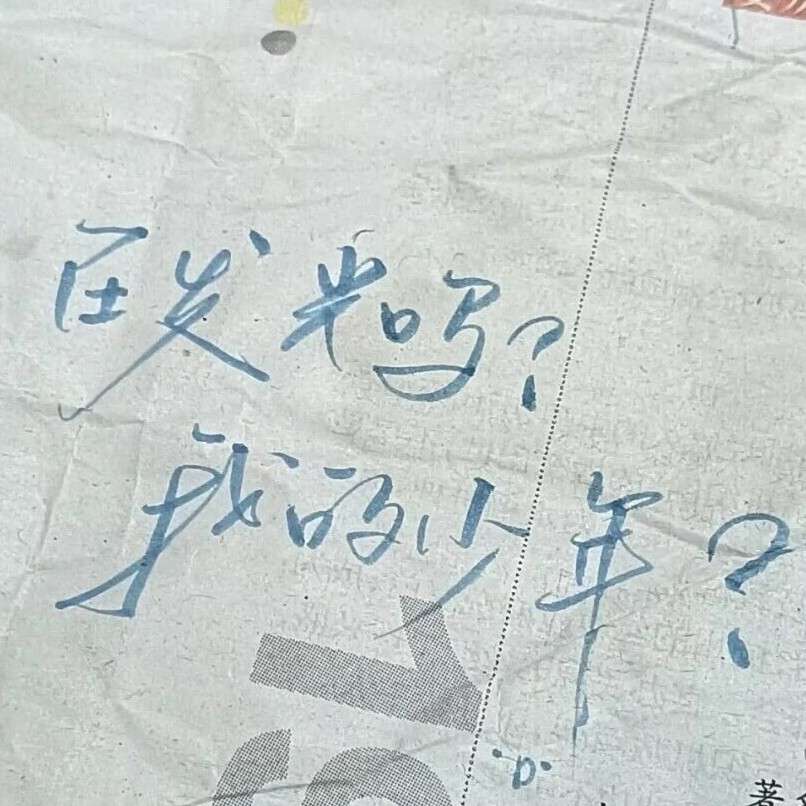 在发光吗?
我的少年?